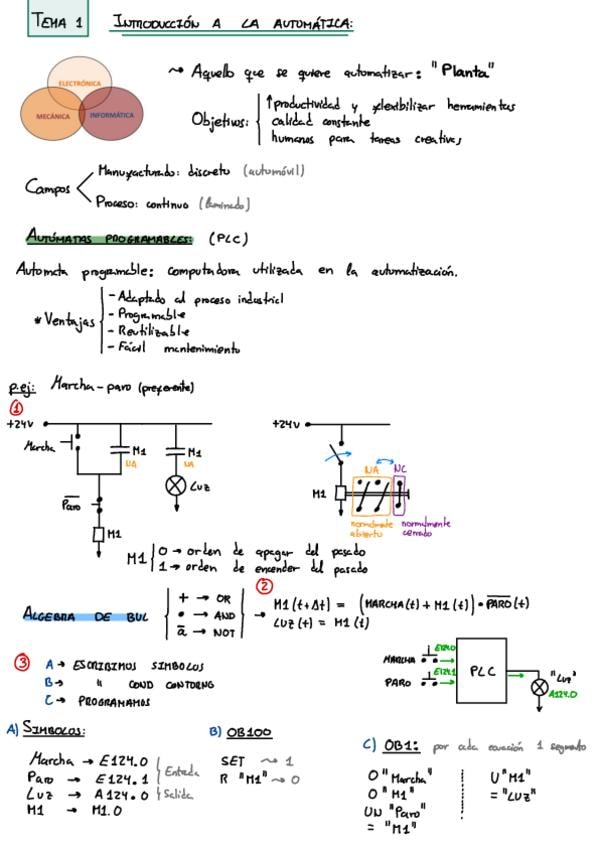 TEMA 1 INTRODUCCIÓN A LA AUTOMÁTICA:
ELECTRÓNICA
MECÁNICA INFORMÁTICA
~> Aquello que se quiere automatizar: "Planta"
Objetivos:
↑productividad y flexibilizar herramientas
calidad constante
humanos para tareas creativas
Campos
Manufacturado: discreto (automóvil)
Proceso: continuo (laminado)
AUTÓMATAS PROGRAMABLES: (PLC)
Automata programable: computadora utilizada en la automatización.
* Ventajas
- Adaptado al proceso industrial
- Programable
- Reutilizable
- Fácil mantenimiento
p.ej: Marcha-paro (preferente)
①
+24V
Marcha
M1
NA
M1
NA
Luz
Paro
M1
+24V
NA NC
M1
normalmente abierto
normalmente cerrado
M1
0 → orden de apagar del pasado
1 → orden de encender del pasado
②
ALGEBRA DE BUL
+ → OR
• → AND
a̅ → NOT
→ M1(t+Δt) = (MARCHA(t) + M1(t)) • P̅A̅R̅O̅(t)
LUZ(t) = M1(t)
③
A → ESCRIBIMOS SIMBOLOS
B → " COND CONTORNO
C → PROGRAMAMOS
MARCHA E124.0
PARO E124.1
PLC
"Luz"
A124.0
A) SIMBOLOS:
Marcha → E124.0
Paro → E124.1
Entrada
Luz → A124.0 Salida
M1 → M1.0
B) OB100
SET ~> 1
R "M1" ~> 0
C) OB1: por cada ecuación 1 segmento
O "Marcha"
O "M1"
UN "Paro"
= "M1"
U "M1"
= "LUZ"